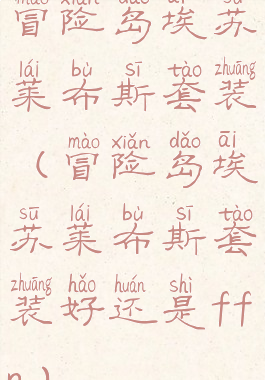 mào xiǎn dǎo āi sū
冒险岛埃苏
lái bù sī tào zhuāng
莱布斯套装
mào xiǎn dǎo āi
（冒险岛埃
sū lái bù sī tào
苏莱布斯套
zhuāng hǎo huán shì
装好还是ff
n）